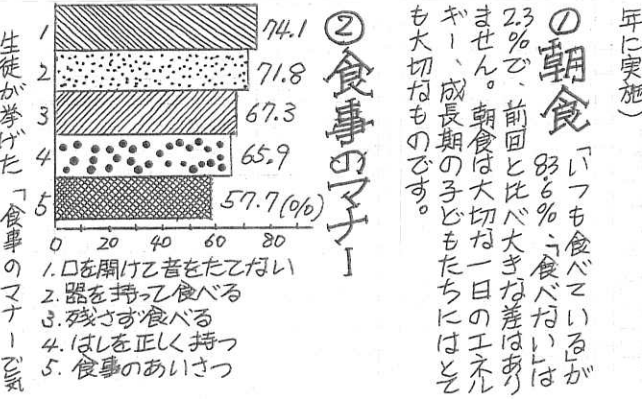 年に実施)
①朝食
「いつも食べている」が
83.6%、「食べない」は
2.3%で、前回と比べ大きな差はあり
ません。朝食は大切な一日のエネル
ギー、成長期の子どもたちにはとて
も大切なものです。
②食事のマナー
1 74.1
2 71.8
3 67.3
4 65.9
5 57.7(%)
0 20 40 60 80
1.口を開けて音をたてない
2.器を持って食べる
3.残さず食べる
4.はしを正しく持つ
5.食事のあいさつ
生徒が挙げた「食事のマナーで気